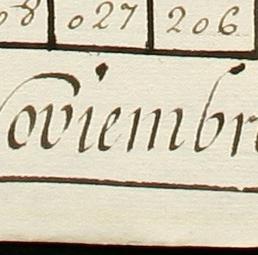 08 027 206
Noviembre